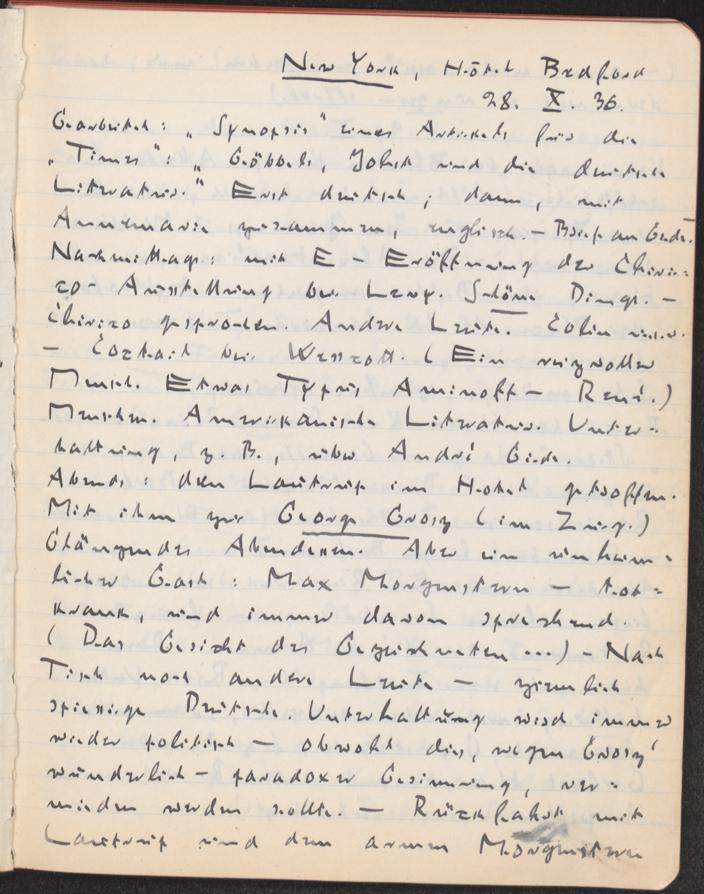 New York, Hôtel Bedford
28. X 36.
Gearbeitet: „Synopsis" eines Artikels für die
„Times": „Göbbels, Johst und die deutsche
Literatur." Erst deutsch; dann, mit
Annemarie zusammen, englisch. – Brief an Gide.
Nachmittags: mit E – Eröffnung der Chiri-
co-Ausstellung bei Levy. Schöne Dinge. –
Chirico gesprochen. Andere Leute.
– Cocktail bei Wescott. (Ein reizvoller
Mensch. Etwas Typus Aminoff – René.)
Menschen. Amerikanische Literatur. Unter-
haltung, z. B., über André Gide.
Abends: den Lautrup im Hotel getroffen.
Mit ihm zu George Grosz (im Zug.)
Glänzendes Abendessen. Aber ein unheim-
licher Gast: Max Morgenstern – tot-
krank, und immer davon sprechend.
(Das Gesicht des Gezeichneten ...) – Nach
Tisch noch andere Leute – ziemlich
spiessige Deutsche. Unterhaltung wird immer
wieder politisch – obwohl dies, wegen Grosz'
wunderlich-paradoxer Gesinnung, ver-
mieden werden sollte. – Rückfahrt mit
Lautrup und dem armen Morgenstern